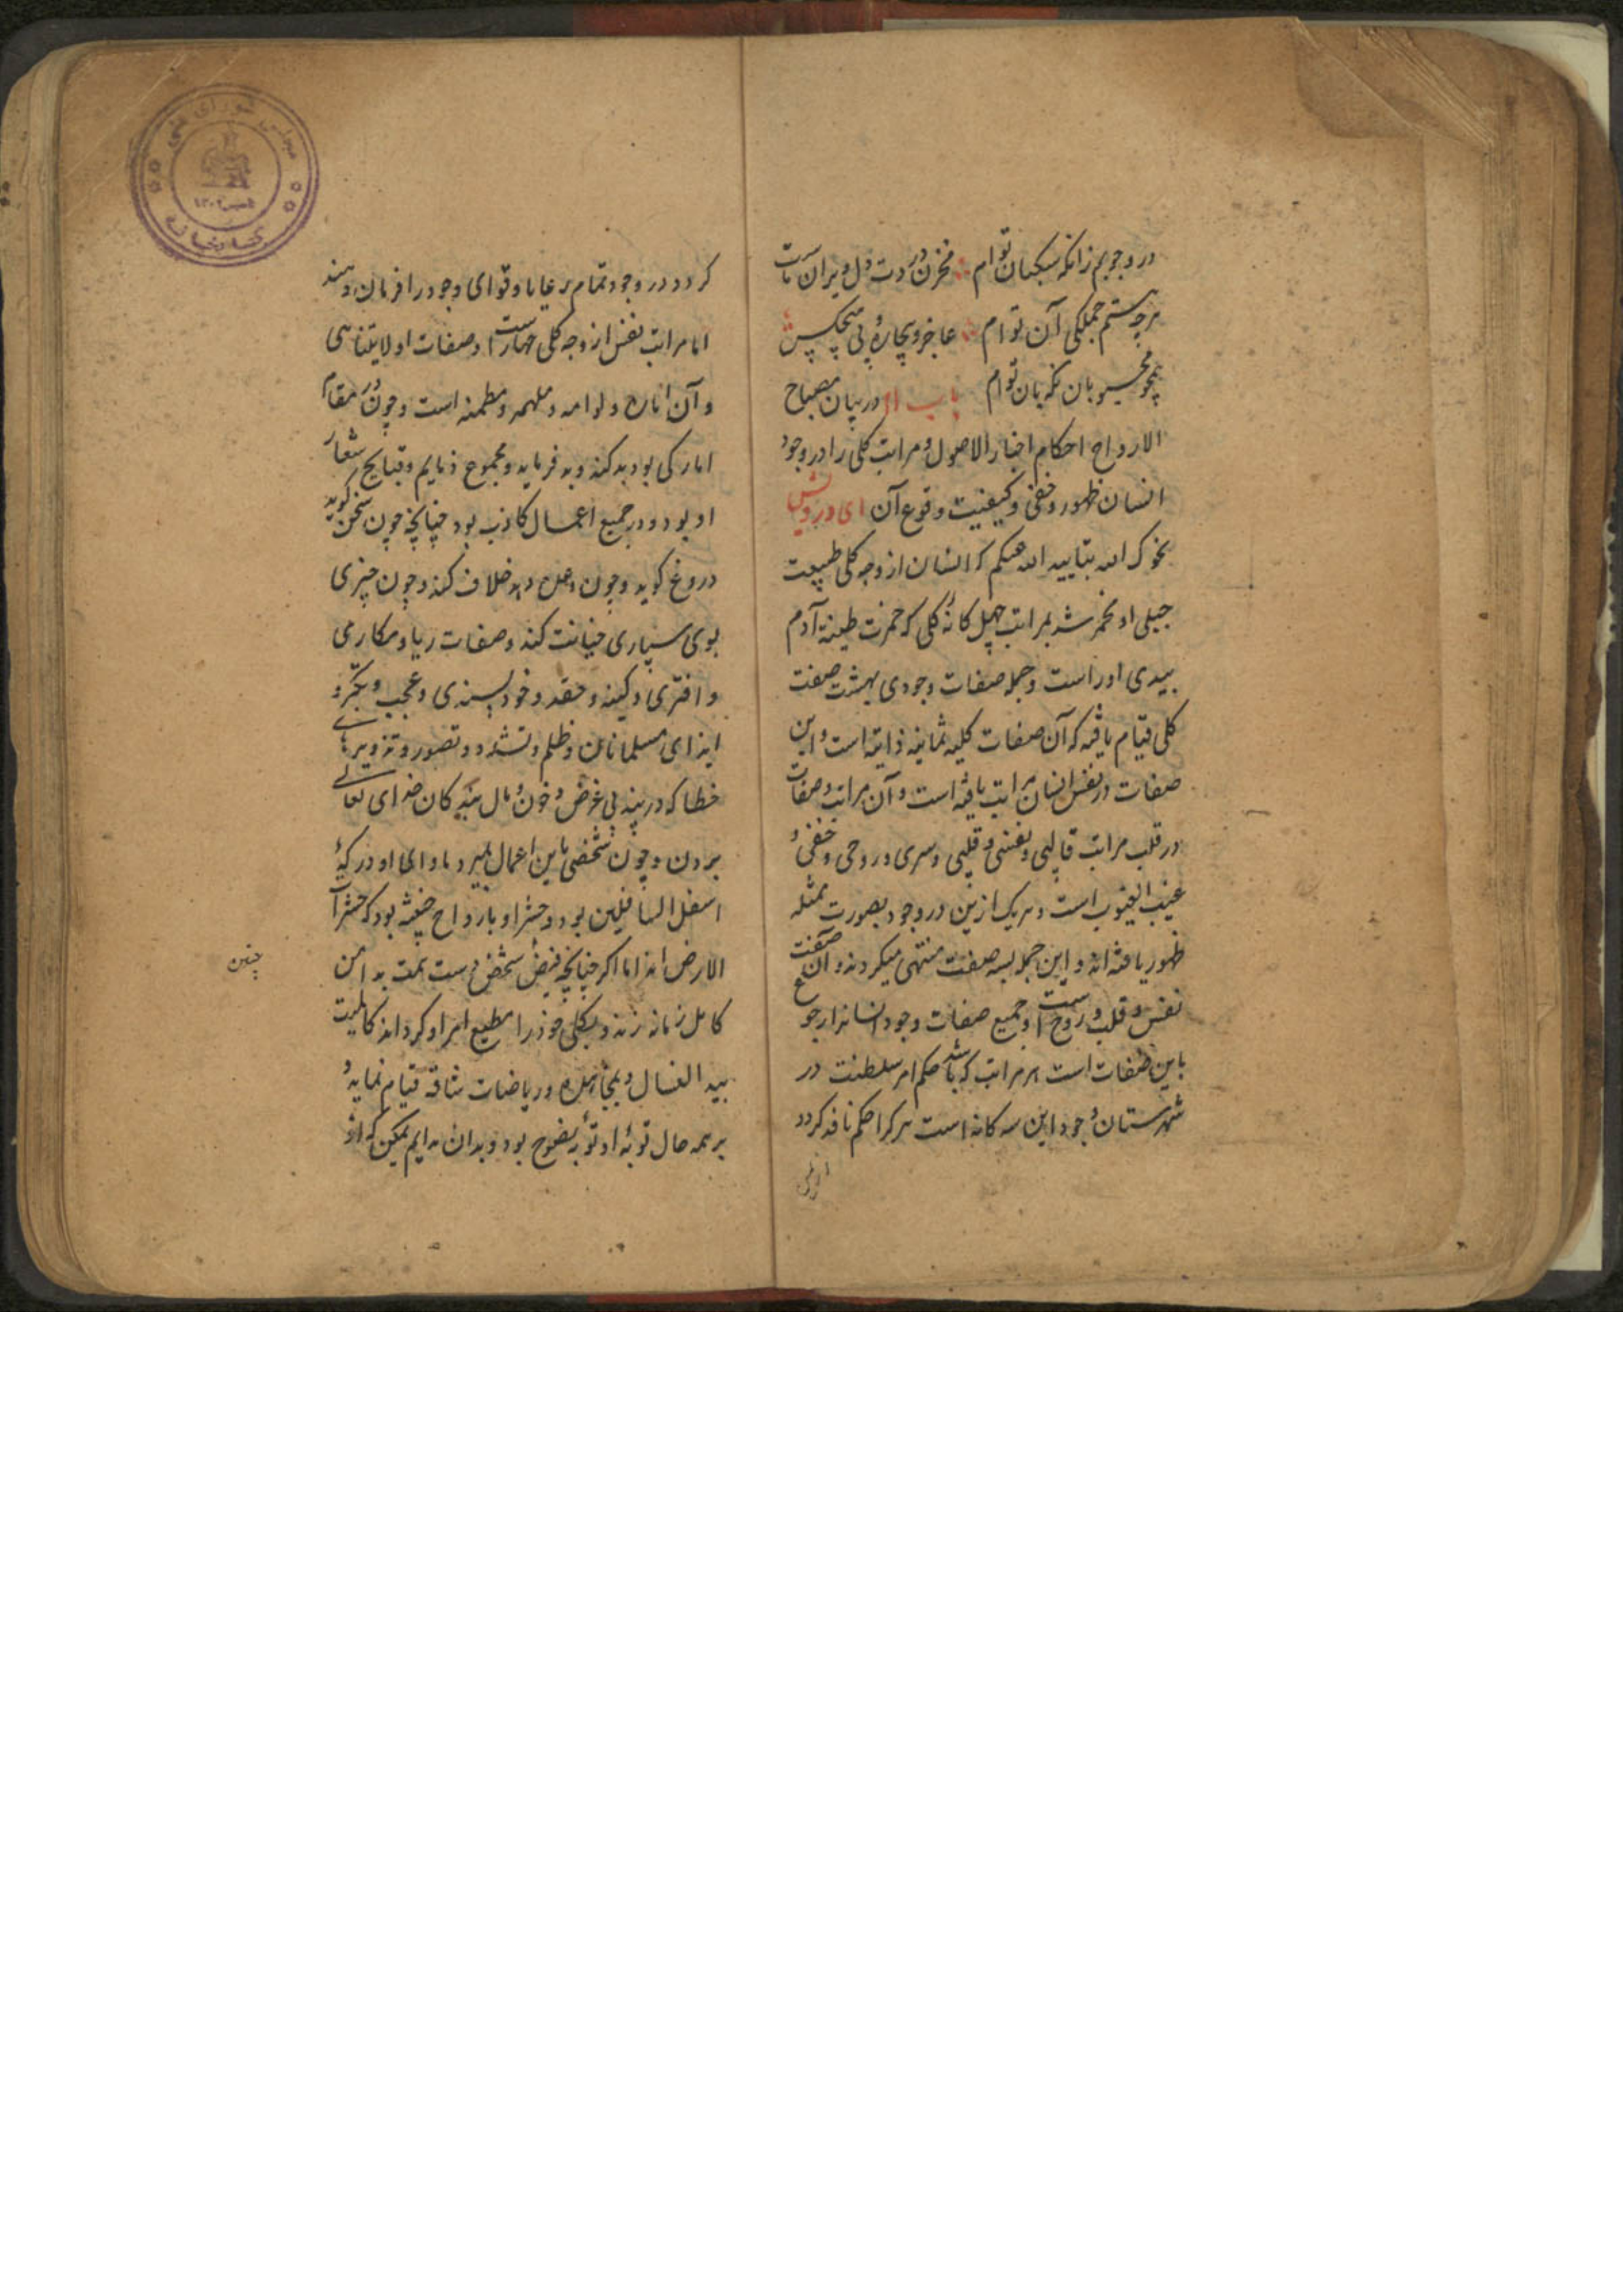 در وجوبم زانکه سکبان توام ∴ مخزن دردت دل ویران ماست
هرچه هستم جملکی آن توام ∴ عاجز و بیچاره و بی هیچکس
همچو خسرو بان نکهبان توام باب در بیان مصباح
الارواح احکام اخبار الاصول و مراتب کلی را در وجود
انسان ظهور و خفی و کیفیت وقوع آن ای درویش
الله بتایید الله حکم که انسان از وجه کلی طبیعت
جبلی او مخمر شد بمراتب چهل کانهٔ کلی که خمرت طینة آدم
بیدی اوراست و جمله صفات وجودی بهشت صفت
کلی قیام یافته که آن صفات کلیه ثمانیه ذاتیه است و این
صفات در نفس انسان مراتب یافته است و آن مراتب و صفات
در قلب مراتب قالبی و نفسی و قلبی و سری و روحی و خفی و
غیب الغیوب است و هریک ازین در وجود بصورت تمثله
ظهور یافته اند و این جمله بسه صفت منتهی میکردند و آن صفت
نفس و قلب و روح است و جمیع صفات وجود انسانرا رجوع
باین صفات است هر مراتب که باشد حکم امر سلطنت در
شهرستان وجود این سه کانه است هرکرا حکم نافذ کردد
کردد در وجود تمام رعایا و قوای وجود را فرمان دهند
اما مراتب نفس از وجه کلی چهار است و صفات او لایتناهی
و آن اماره و لوامه و ملهمه و مطمئنه است و چون مقام
امارکی بود بد کند و بد فرماید و مجموع ذمایم و قبایح شعار
او بود و در جمیع اعمال کاذب بود چنانچه چون سخن کوید
دروغ کوید و چون وعده دهد خلاف کند و چون چیزی
بوی سپاری خیانت کند و صفات ریا و مکارمی
و افتری و کینه و حقد و خود پسندی و عجب و تکبر و
ایذای مسلمانان و ظلم و تشدد و تصور و تزویرهای
خطا که در بینه بی غرض و خون و مال بندکان خدای تعالی
بردن و چون شخصی باین اعمال بمیرد ماوای او در کهٔ
اسفل السافلین بود و حشر او بارواح خبیثه بود که حشرات
الارض اند اما اکر چنانچه فیض شخص دست همت بدامن
چنین
کامل زمانه زند و بکلی خود را مطیع امر او کرداند کالمیت
بید الغسال و بمجاهده و ریاضات شاقه قیام نماید و
برهمه حال توبهٔ او توبهٔ نصوح بود و بدان دایم تمکین که از
مجلس شورای ملی
۱۳۰۲
کتابخانه